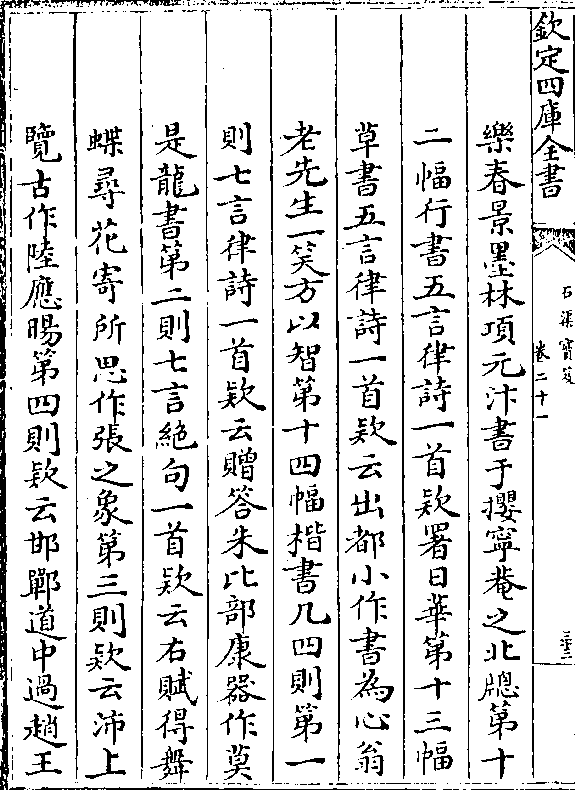 欽定四庫全書
石渠寶笈
卷二十一
三三
樂春景墨林項元汴書于攖寧菴之北牕第十
二幅行書五言律詩一首款署日華第十三幅
草書五言律詩一首款云出都小作書為心翁
老先生一笑方以智第十四幅楷書凡四則第一
則七言律詩一首款云贈答朱比部康器作莫
是龍書第二則七言絶句一首款云右賦得舞
蝶尋花寄所思作張之象第三則款云沛上
覽古作陸應暘第四則款云邯鄲道中過趙王